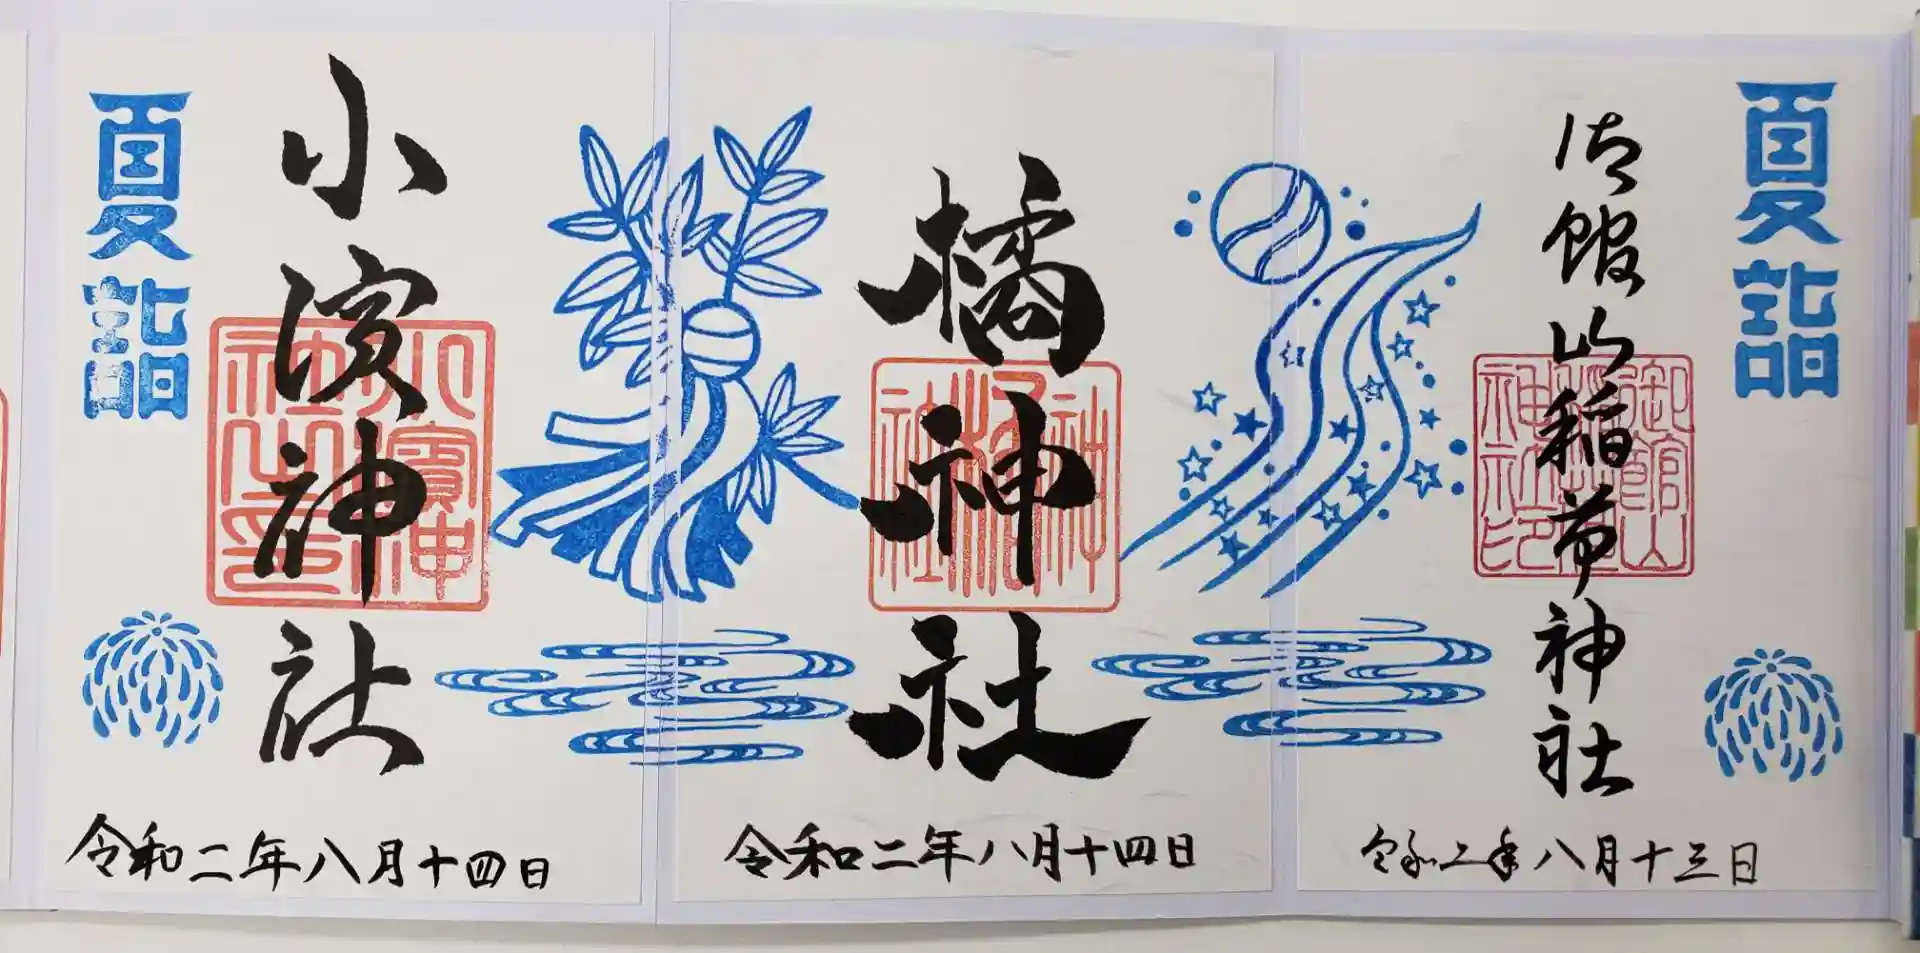 夏詣
御館山稲荷神社
令和二年八月十三日
橘神社
令和二年八月十四日
小濱神社
令和二年八月十四日
夏詣